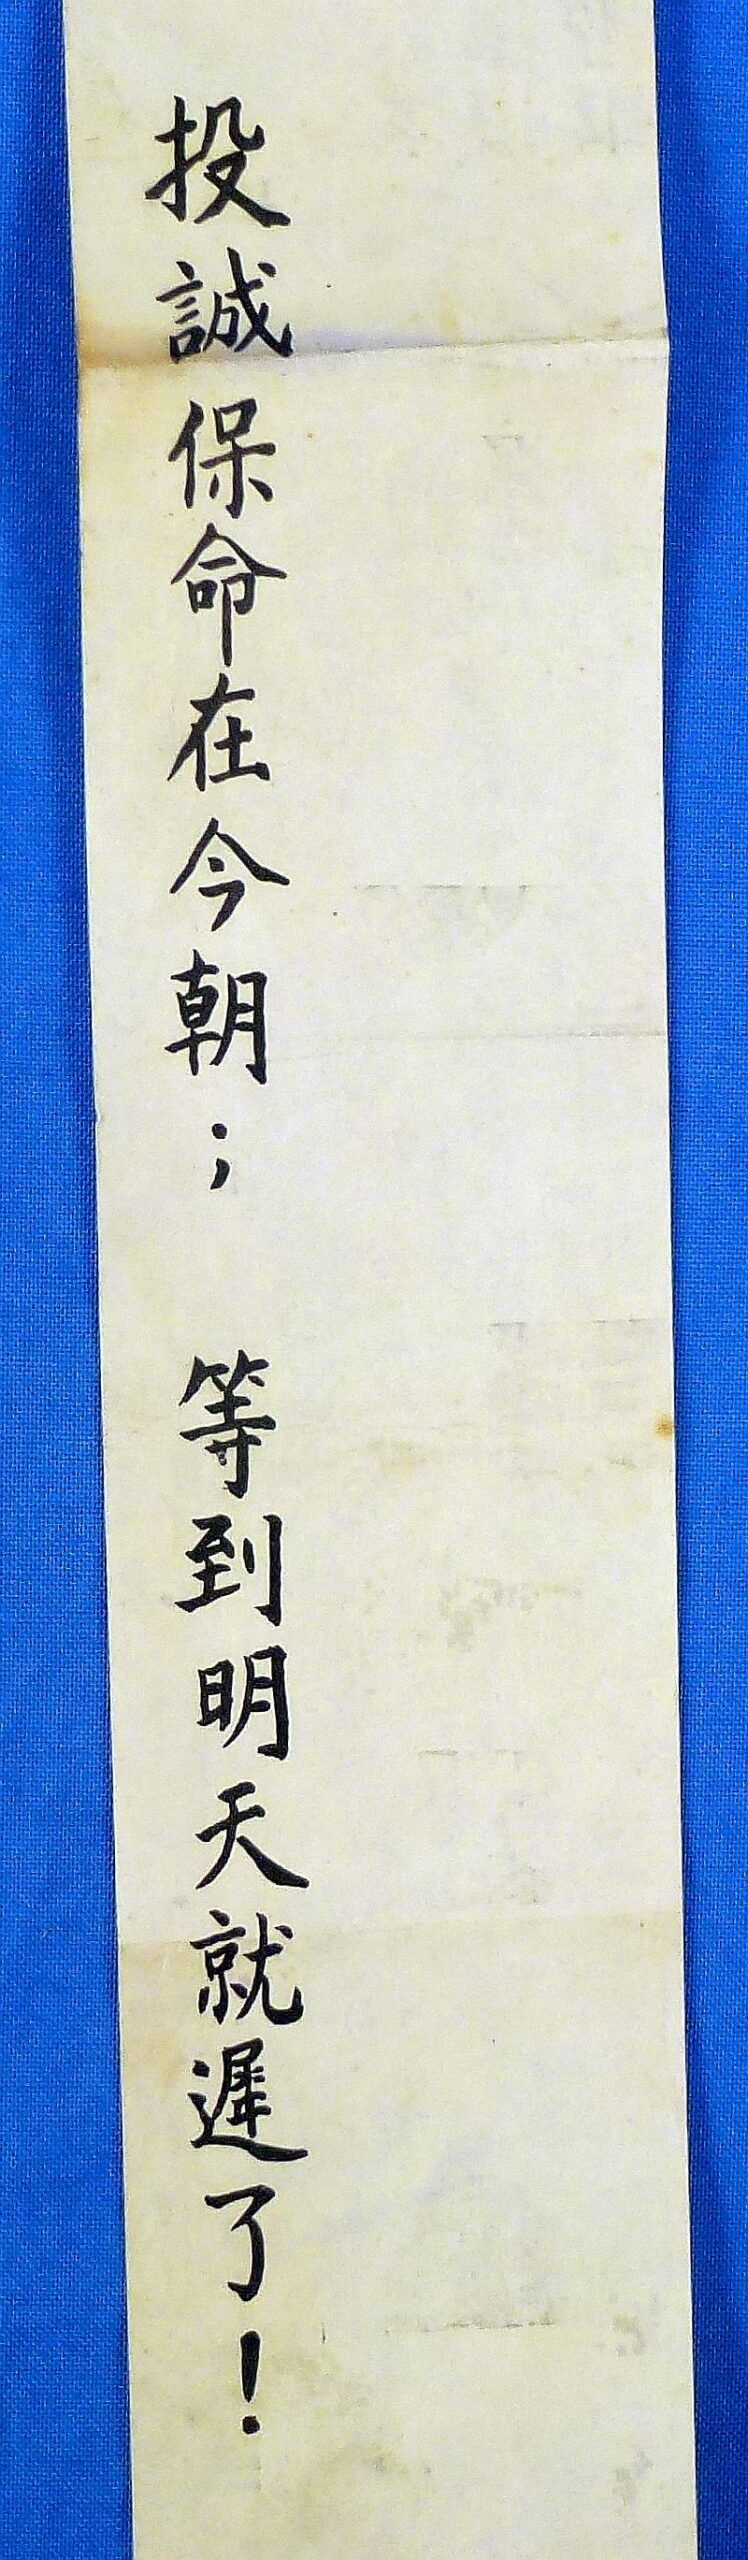 投誠保命在今朝; 等到明天就遲了!